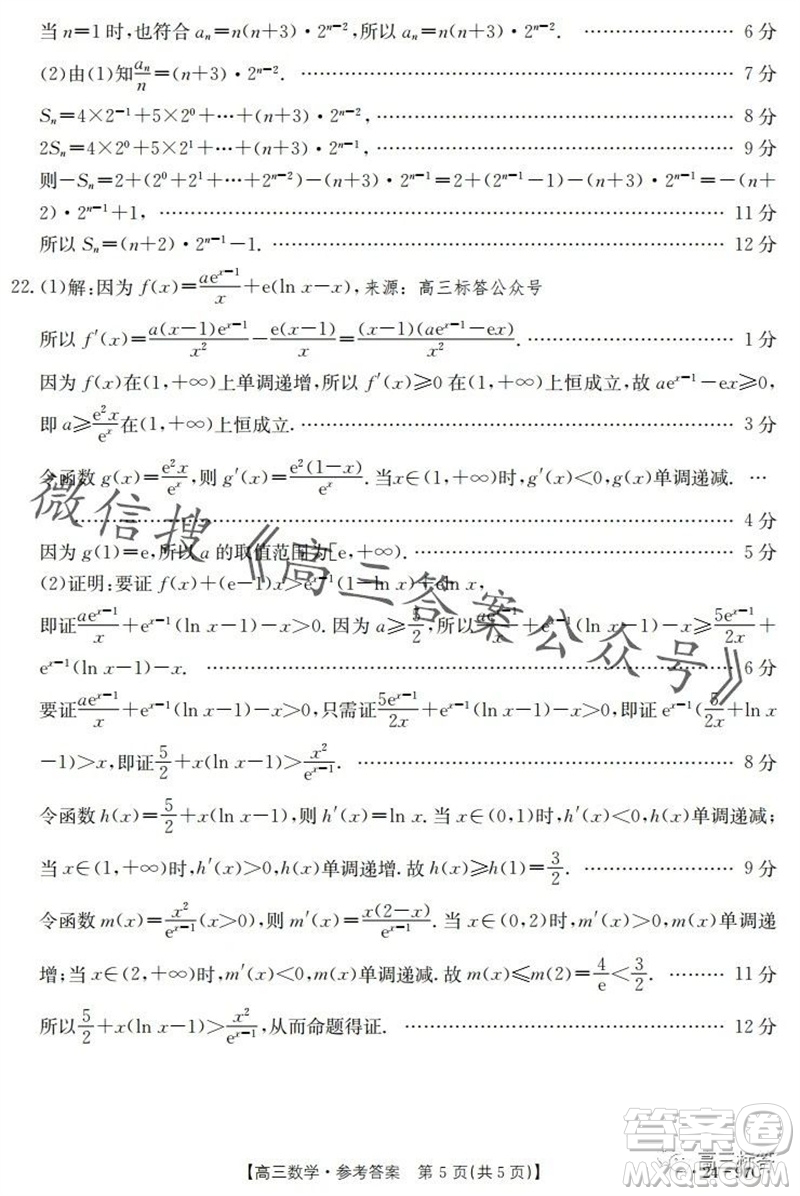 当 n=1 时,也符合 aₙ=n(n+3)·2ⁿ⁻²,所以 aₙ=n(n+3)·2ⁿ⁻². ………………… 6 分
(2)由(1)知 aₙ/n=(n+3)·2ⁿ⁻². ………………… 7 分
Sₙ=4×2⁻¹+5×2⁰+…+(n+3)·2ⁿ⁻², ………………… 8 分
2Sₙ=4×2⁰+5×2¹+…+(n+3)·2ⁿ⁻¹, ………………… 9 分
则−Sₙ=2+(2⁰+2¹+…+2ⁿ⁻²)−(n+3)·2ⁿ⁻¹=2+(2ⁿ⁻¹−1)−(n+3)·2ⁿ⁻¹=−(n+
2)·2ⁿ⁻¹+1, ………………… 11 分
所以 Sₙ=(n+2)·2ⁿ⁻¹−1. ………………… 12 分
22.(1)解:因为 f(x)=aeˣ⁻¹/x+e(ln x−x),来源：高三标答公众号
所以 f′(x)=a(x−1)eˣ⁻¹/x²−e(x−1)/x=(x−1)(aeˣ⁻¹−ex)/x². ………………… 1 分
因为 f(x)在(1,+∞)上单调递增,所以 f′(x)≥0 在(1,+∞)上恒成立,故 aeˣ⁻¹−ex≥0,
即 a≥e²x/eˣ在(1,+∞)上恒成立. ………………… 3 分
令函数 g(x)=e²x/eˣ,则 g′(x)=e²(1−x)/eˣ.当 x∈(1,+∞)时,g′(x)<0,g(x)单调递减. …
………………… 4 分
因为 g(1)=e,所以 a 的取值范围为[e,+∞). ………………… 5 分
(2)证明:要证 f(x)+(e−1)x>eˣ⁻¹(1−ln x)+eln x,
即证aeˣ⁻¹/x+eˣ⁻¹(ln x−1)−x>0.因为 a≥5/2,所以aeˣ⁻¹/x+eˣ⁻¹(ln x−1)−x≥5eˣ⁻¹/2x+
eˣ⁻¹(ln x−1)−x. ………………… 6 分
要证aeˣ⁻¹/x+eˣ⁻¹(ln x−1)−x>0,只需证5eˣ⁻¹/2x+eˣ⁻¹(ln x−1)−x>0,即证 eˣ⁻¹(5/2x+ln x
−1)>x,即证5/2+x(ln x−1)>x²/eˣ⁻¹. ………………… 8 分
令函数 h(x)=5/2+x(ln x−1),则 h′(x)=ln x.当 x∈(0,1)时,h′(x)<0,h(x)单调递减;
当 x∈(1,+∞)时,h′(x)>0,h(x)单调递增.故 h(x)≥h(1)=3/2. ………………… 9 分
令函数 m(x)=x²/eˣ⁻¹(x>0),则 m′(x)=x(2−x)/eˣ⁻¹.当 x∈(0,2)时,m′(x)>0,m(x)单调递
增;当 x∈(2,+∞)时,m′(x)<0,m(x)单调递减.故 m(x)≤m(2)=4/e<3/2. ……… 11 分
所以5/2+x(ln x−1)>x²/eˣ⁻¹,从而命题得证. ………………… 12 分
微信搜《高三答案公众号》
答案圈
高三标答
【高三数学·参考答案 第 5 页(共 5 页)】